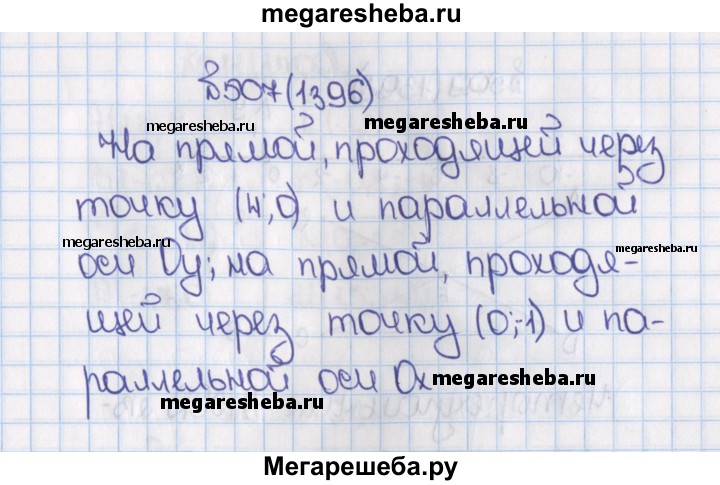 megaresheba.ru
№907(1396)
megaresheba.ru
megaresheba.ru
На прямой, проходящей через
точку (4;0) и параллельной
megaresheba.ru
megaresheba.ru
оси Oy; на прямой, проходя-
щей через точку (0;-1) и па-
раллельной оси Ox
megaresheba.ru
megaresheba.ru
Мегарешеба.ру